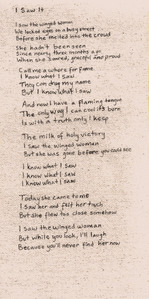 I Saw It
I saw the winged woman
We locked eyes on a busy street
Before she melted into the crowd
She hadn't been seen
Since nearly three months ago
When she soared, graceful and proud
Call me a whore for fame
I know what I saw
They can drag my name
But I know what I saw
And now I have a flaming tongue
The only way I can cool its burn
Is with a truth only I keep
The milk of holy victory
I saw the winged woman
But she was gone before you could see
I know what I saw
I know what I saw
I know what I saw
Today she came to me
I saw her and felt her touch
But she flew too close somehow
I saw the winged woman
But while you look, I'll laugh
Because you'll never find her now